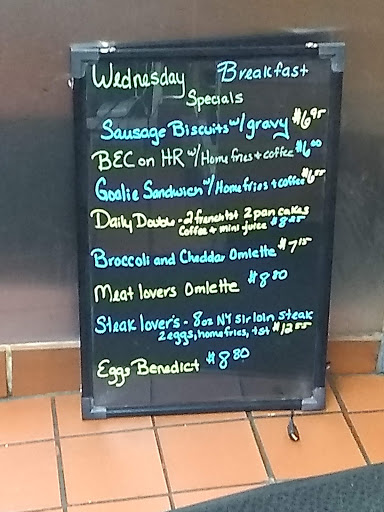 Wednesday Breakfast
Specials
Sausage Biscuits w/ gravy $6.95
BEC on HR w/ Home fries + coffee $6.00
Goalie Sandwich w/ Homefries + coffee
Daily Double - 2 french tst 2 pancakes
Coffee + mini juice
Broccoli and Cheddar Omlette $7.15
Meat lovers Omlette $8.80
Steak lover's - 8oz NY Sirloin Steak
2eggs, homefries, tst $12.55
Eggs Benedict $8.80